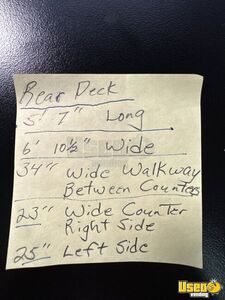 Rear Deck
5' 7" Long
6' 10½" Wide
34" Wide Walkway
Between Counters
23" Wide Counter
Right Side
25" Left Side
Used
vending